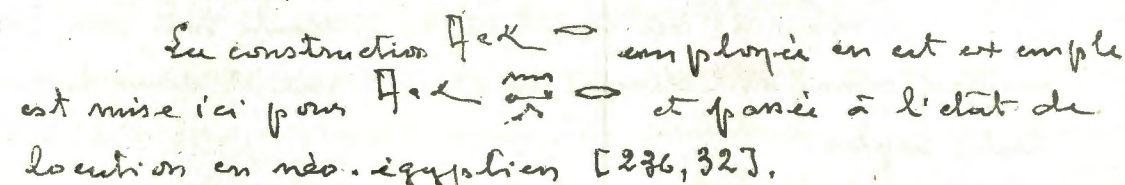 La construction 𓊹 𓂋 employée en cet exemple
est mise ici pour 𓈖 𓂋 et passée à l'état de
locution en néo-égyptien [236,32].